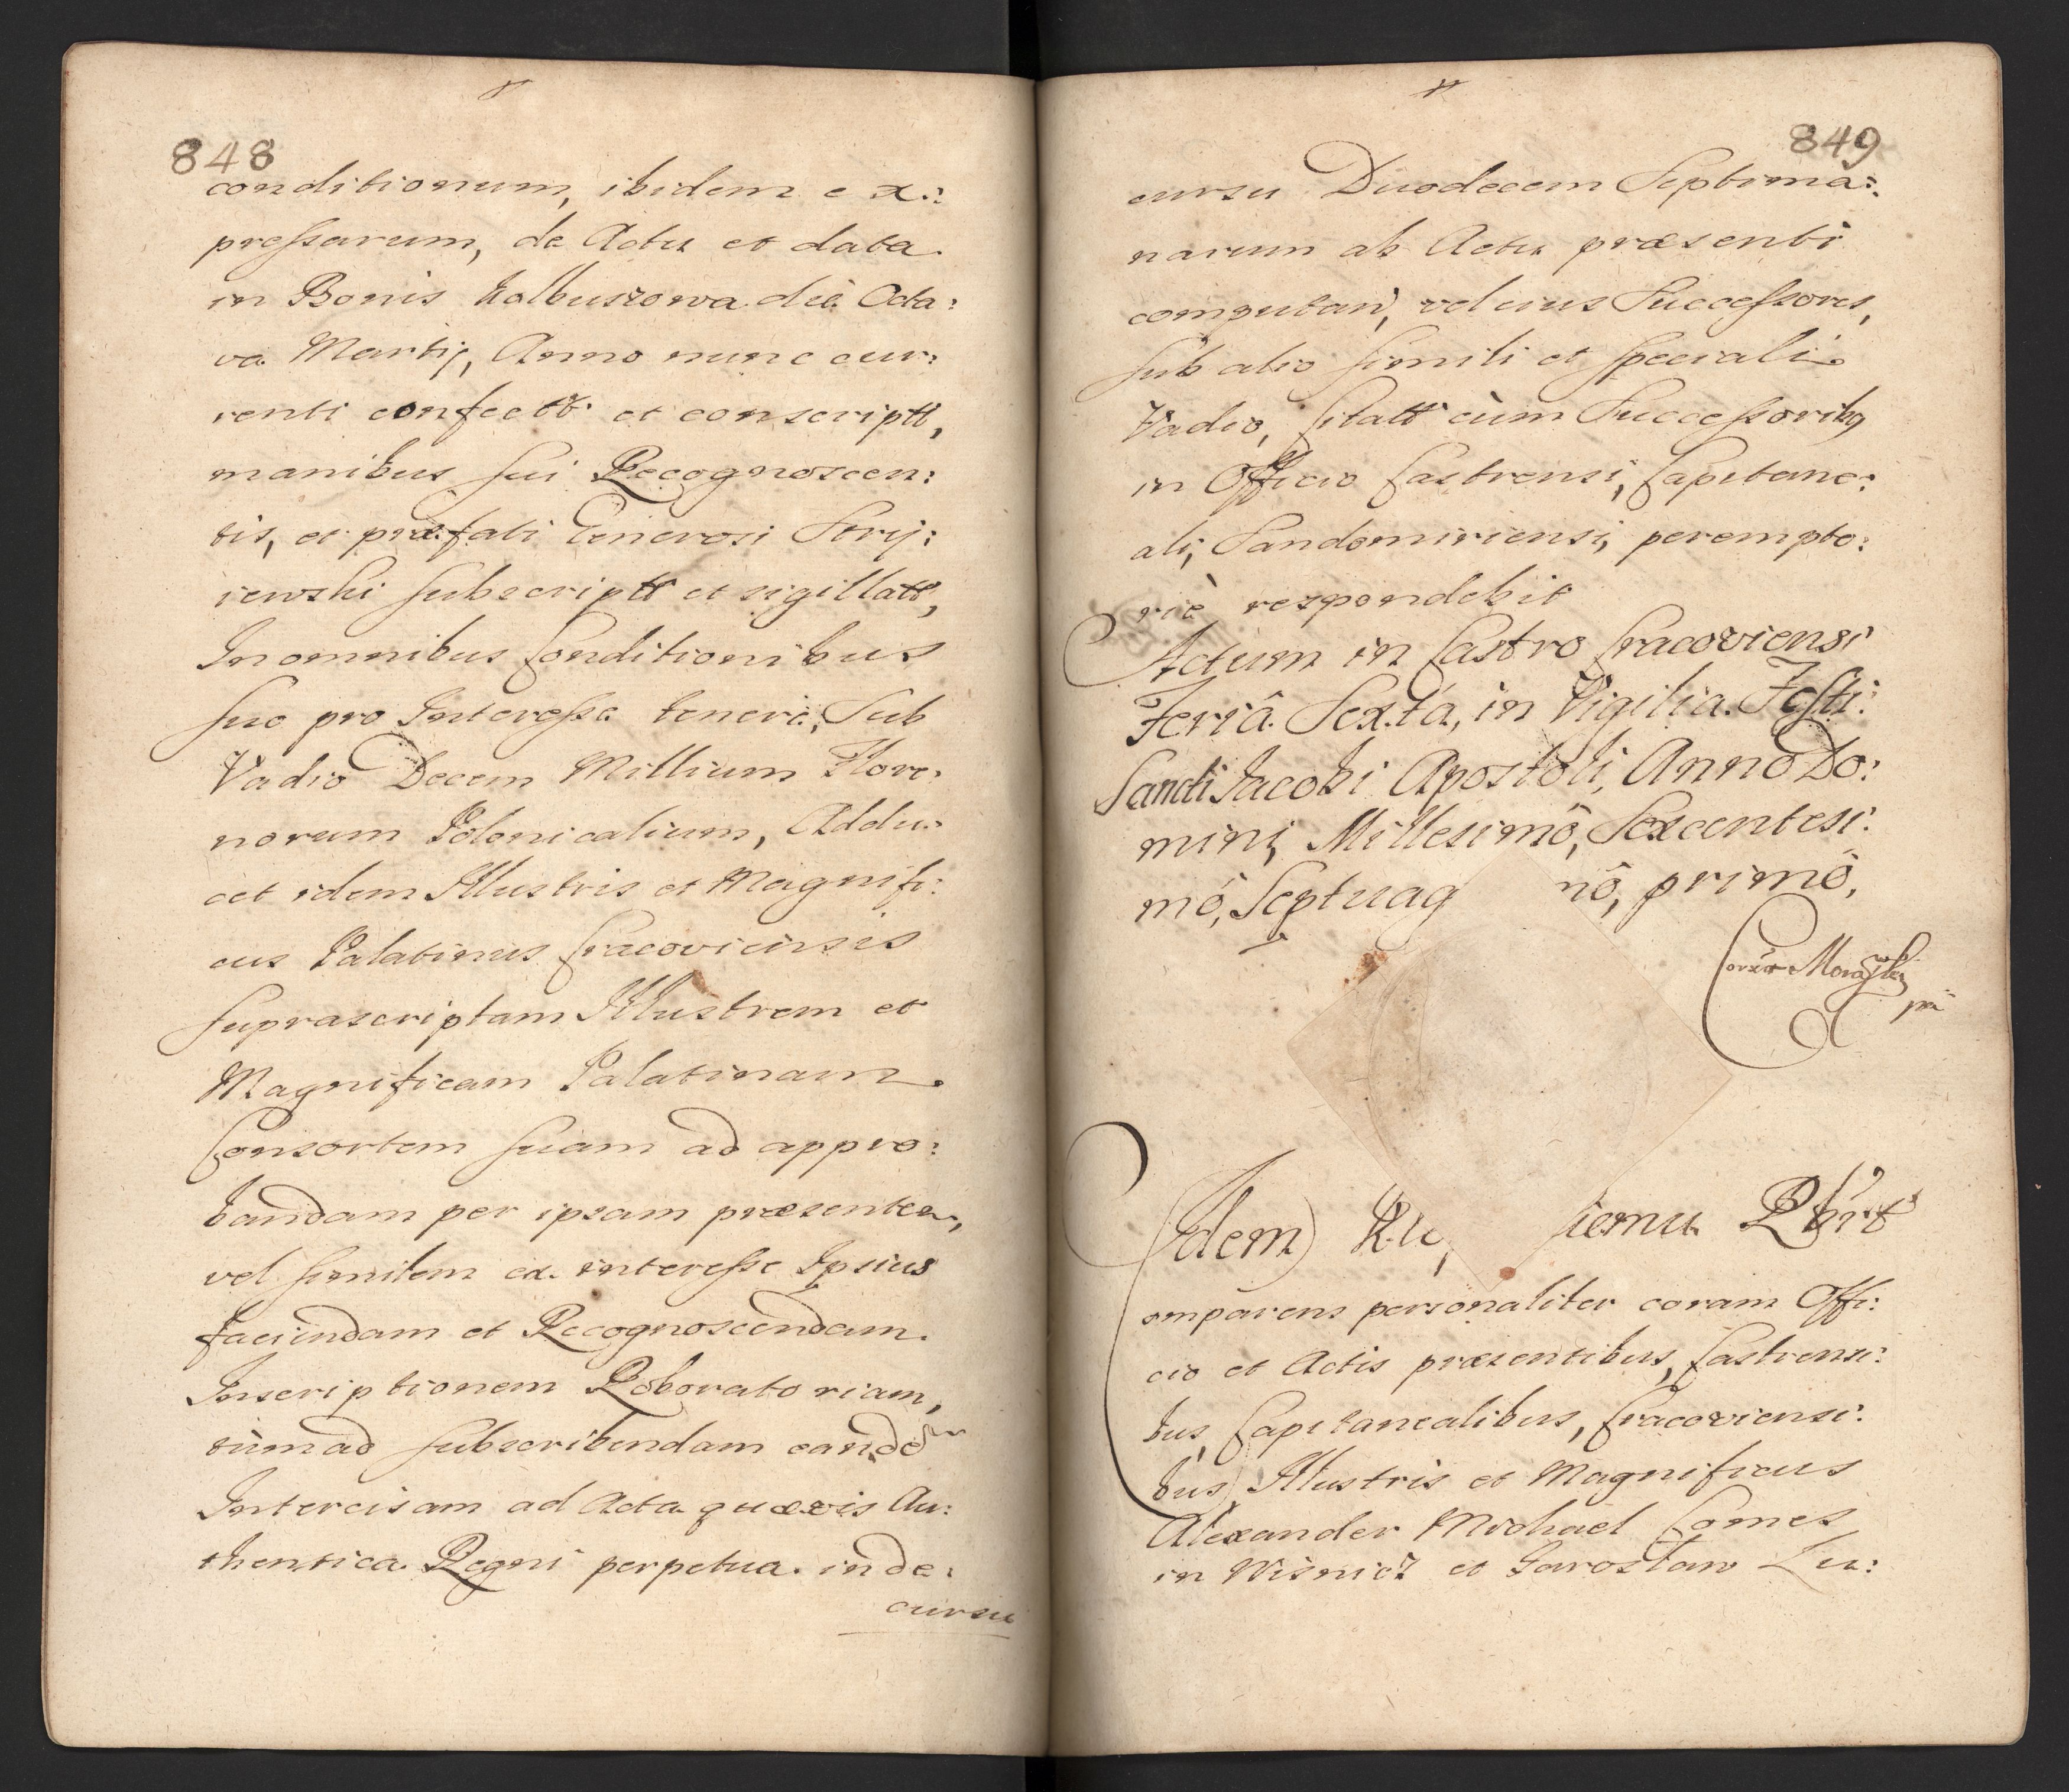 848
conditionum, ibidem ex:
pressarum, de Actu et data
in Bonis Kolbuszowa die Octa:
va Martij, Anno nunc cur:
renti confectt et conscriptt,
manibus sui Recognoscen:
tis, et præfati Generosi Stryj:
iewski subscriptt et sigillatt,
In omnibus Conditionibus
suo pro Interesse teneri, Sub
Vadio Decem Millium Flore:
norum Polonicalium, Addu:
cet idem Illustris et Magnifi:
cus Palatinus Cracoviensis
suprascriptam Illustrem et
Magnificam Palatinam
Consortem suam ad appro:
bandam per ipsam præsentem,
vel similem ex interesse Ipsius
faciendam et Recognoscendam
Inscriptionem Roboratoriam,
tùm ad subscribendam eandem
Intercisam ad Acta quævis Au:
thentica Regni perpetua in de:
cursu
849
cursu Duodecem Septima:
narum ab Actu præsenti
computan, vel eius Successores,
sub alio simili et speciali
Vadio, citatt cùm Successoribq
in Officio Castrensi, Capitane:
ali, Sandomiriensi, perempto:
riè respondebit
Actum in Castro Cracoviensi
Feriâ Sexta, in Vigilia Festi:
Sancti Jacobi Apostoli, Anno Do:
mini, Millesimô, Sexcentesi:
mô, Septuag nô, primô,
Idem iemu
omparens personaliter coram Offi:
cio et Actis præsentibus, Castrensi:
bus, Capitanealibus, Cracoviensi:
bus, Illustris et Magnificus
Alexander Michael Comes
in Wisnicz et Jaroslaw Lu: